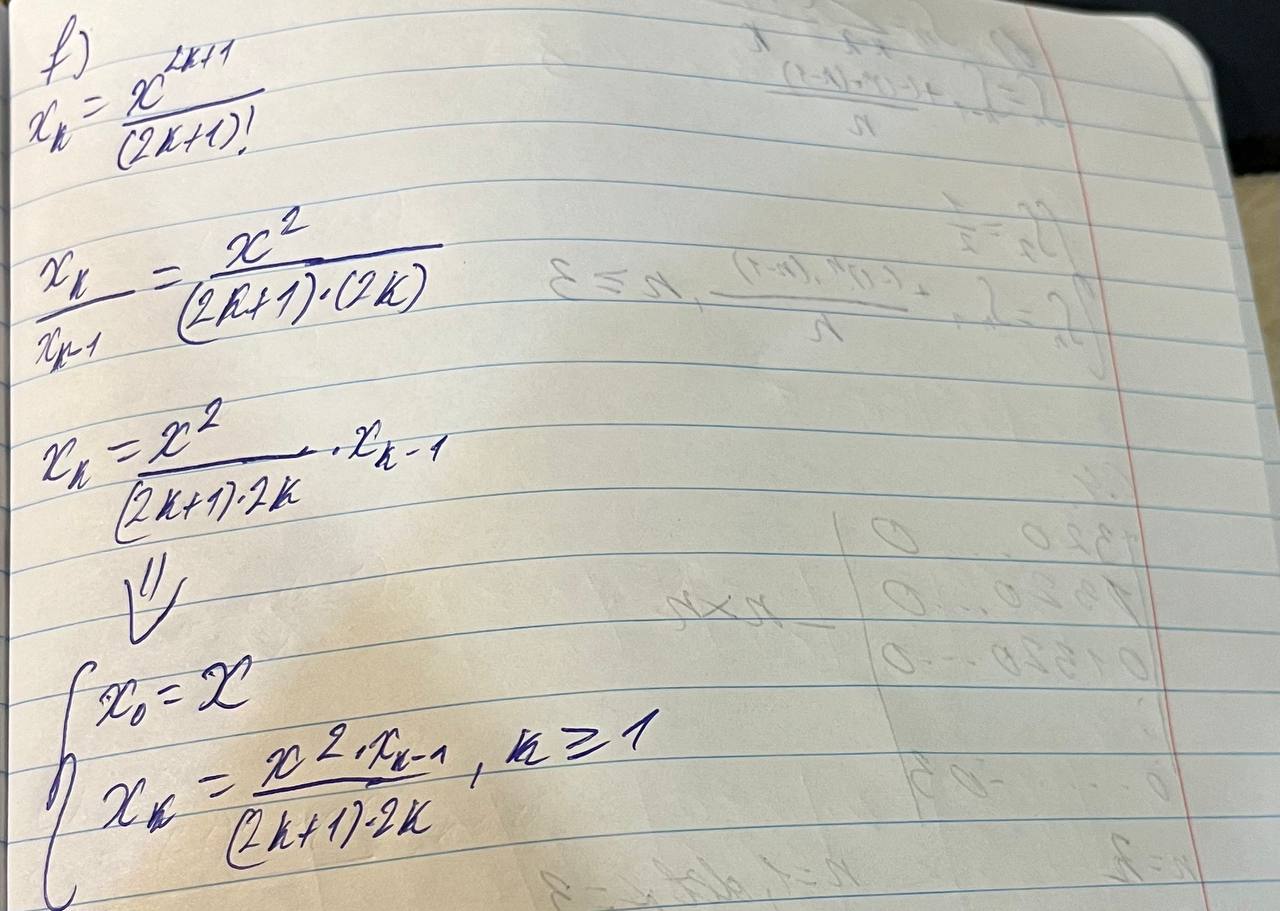 f)
x_k = x^{2k+1} / (2k+1)!
x_k / x_{k-1} = x^2 / ((2k+1)·(2k))
x_k = x^2 / ((2k+1)·2k) · x_{k-1}
⇓
{ x_0 = x
x_k = x^2·x_{k-1} / ((2k+1)·2k), k ≥ 1